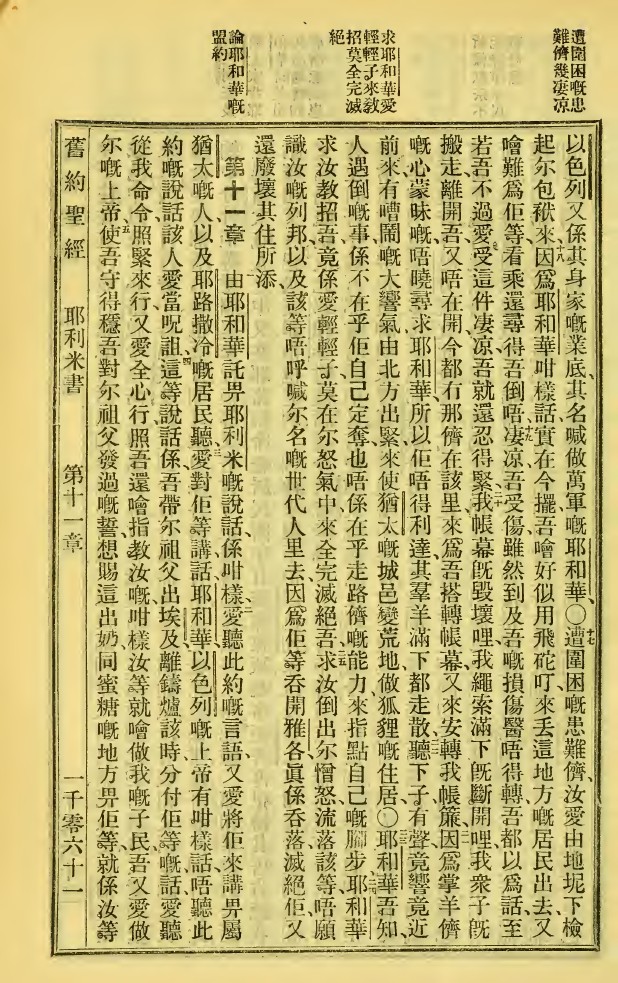 遭圍困嘅患
難儕幾凄凉
求耶和華愛
輕輕子來教
招莫全完滅
絕
論耶和華嘅
盟約
以色列又係其身家嘅業底、其名喊做萬軍嘅耶和華、〇十七遭圍困嘅患難儕、汝愛由地坭下檢
起尔包袱來、十八因爲耶和華咁樣話、實在今擺吾噲好似用飛砣叮來丢這地方嘅居民出去、又
噲難爲佢等、看乘還尋得吾倒唔、十九凄凉吾受傷、雖然到及吾嘅損傷醫唔得轉、吾都以爲話、至
若吾不過愛受這件凄凉、吾就還忍得緊、二十我帳幕既毀壞哩、我繩索滿下既斷開哩、我衆子既
搬走離開吾、又唔在開、今都冇那儕在該里來爲吾搭轉帳幕、又來安轉我帳簾、二一因爲掌羊儕
嘅心蒙昧嘅、唔曉尋求耶和華、所以佢唔得利達、其羣羊滿下都走散、二二聽下子有聲竟響竟近
前來、有嘈鬧嘅大響氣由北方出緊來、使猶太嘅城邑變荒地、做狐狸嘅住居、〇二三耶和華、吾知、
人遇倒嘅事、係不在乎佢自己定奪、也唔係在乎走路儕嘅能力來指點自己嘅脚步、二四耶和華
求汝教招吾、竟係愛輕輕子、莫在尔怒氣中來全完滅絕吾、二五求汝倒出尔憎怒、流落該等唔願
識汝嘅列邦、以及該等唔呼喊尔名嘅世代人里去、因爲佢等吞開雅各、眞係吞落滅絕佢、又
還廢壞其住所添、
第十一章 一由耶和華託畀耶利米嘅說話、係咁樣、二愛聽此約嘅言語、又愛將佢來講畀屬
猶太嘅人、以及耶路撒冷嘅居民聽、三愛對佢等講話、耶和華以色列嘅上帝有咁樣話、唔聽此
約嘅說話該人愛當呪詛、四這等說話係吾帶尔祖父出埃及離鑄爐該時分付佢等嘅話、愛聽
從我命令、照緊來行、又愛全心行照吾還噲指教汝嘅咁樣、汝等就噲做我嘅子民、吾又愛做
尔嘅上帝、五使吾守得穩吾對尔祖父發過嘅誓、想賜這出奶同蜜糖嘅地方畀佢等、就係汝等
舊約聖經 耶利米書 第十一章 一千零六十一